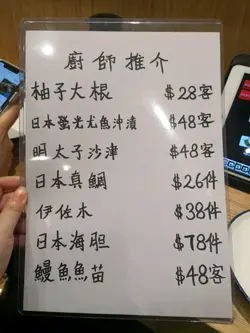 廚師推介
柚子大根 $28客
日本螢光尤魚沖漬 $48客
明太子沙津 $48客
日本真鯛 $26件
伊佐木 $38件
日本海胆 $78件
鰻魚魚苗 $48客